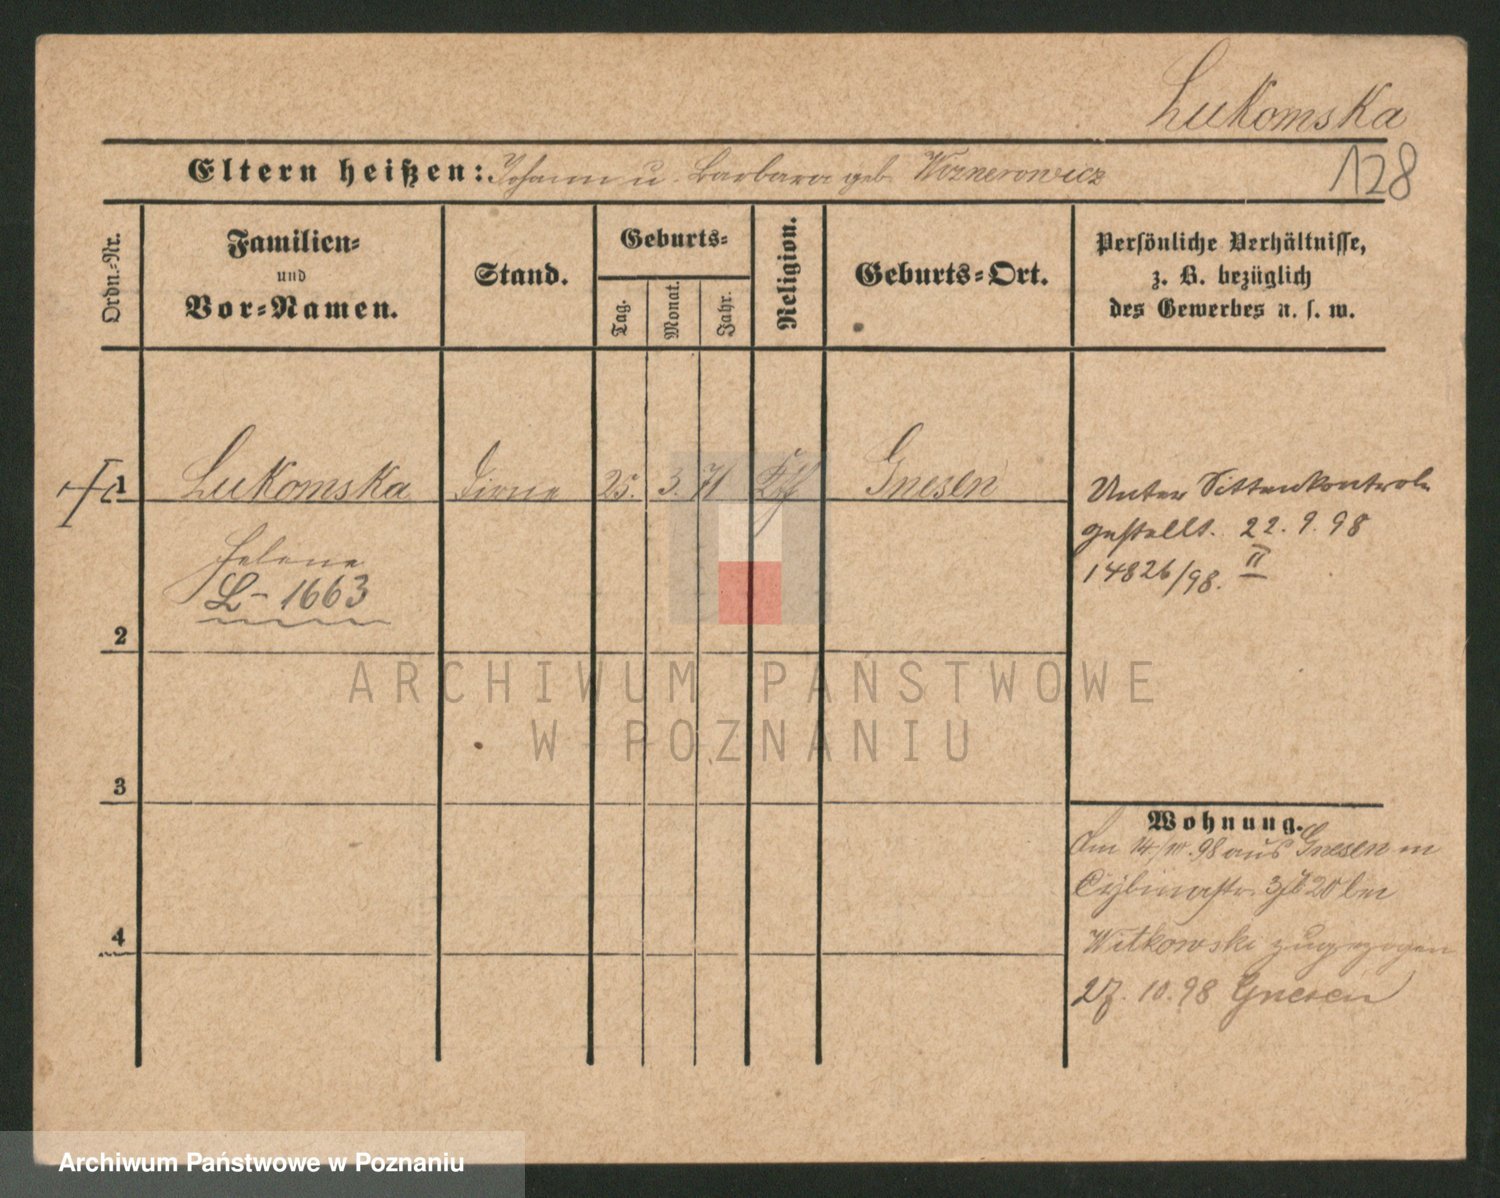 Lukomska
128
Eltern heißen: Johann u. Barbara geb. Woznerowicz
Ordn.-Nr.
Familien-
und
Vor-Namen.
Stand.
Geburts-
Tag.
Monat.
Jahr.
Religion.
Geburts-Ort.
Persönliche Verhältnisse,
z. B. bezüglich
des Gewerbes u. s. w.
1 Lukomska Dirne 25. 3. 71 Kth Gnesen
Helene
L- 1663
Unter Sittenkontrole
gestellt. 22. 9. 98
14826/98. II
2
3
4
Wohnung.
Am 14/ 98 aus Gnesen in
20 bei
Witkowski zugezogen
27. 10. 98 Gnesen
ARCHIWUM PAŃSTWOWE
W POZNANIU
Archiwum Państwowe w Poznaniu